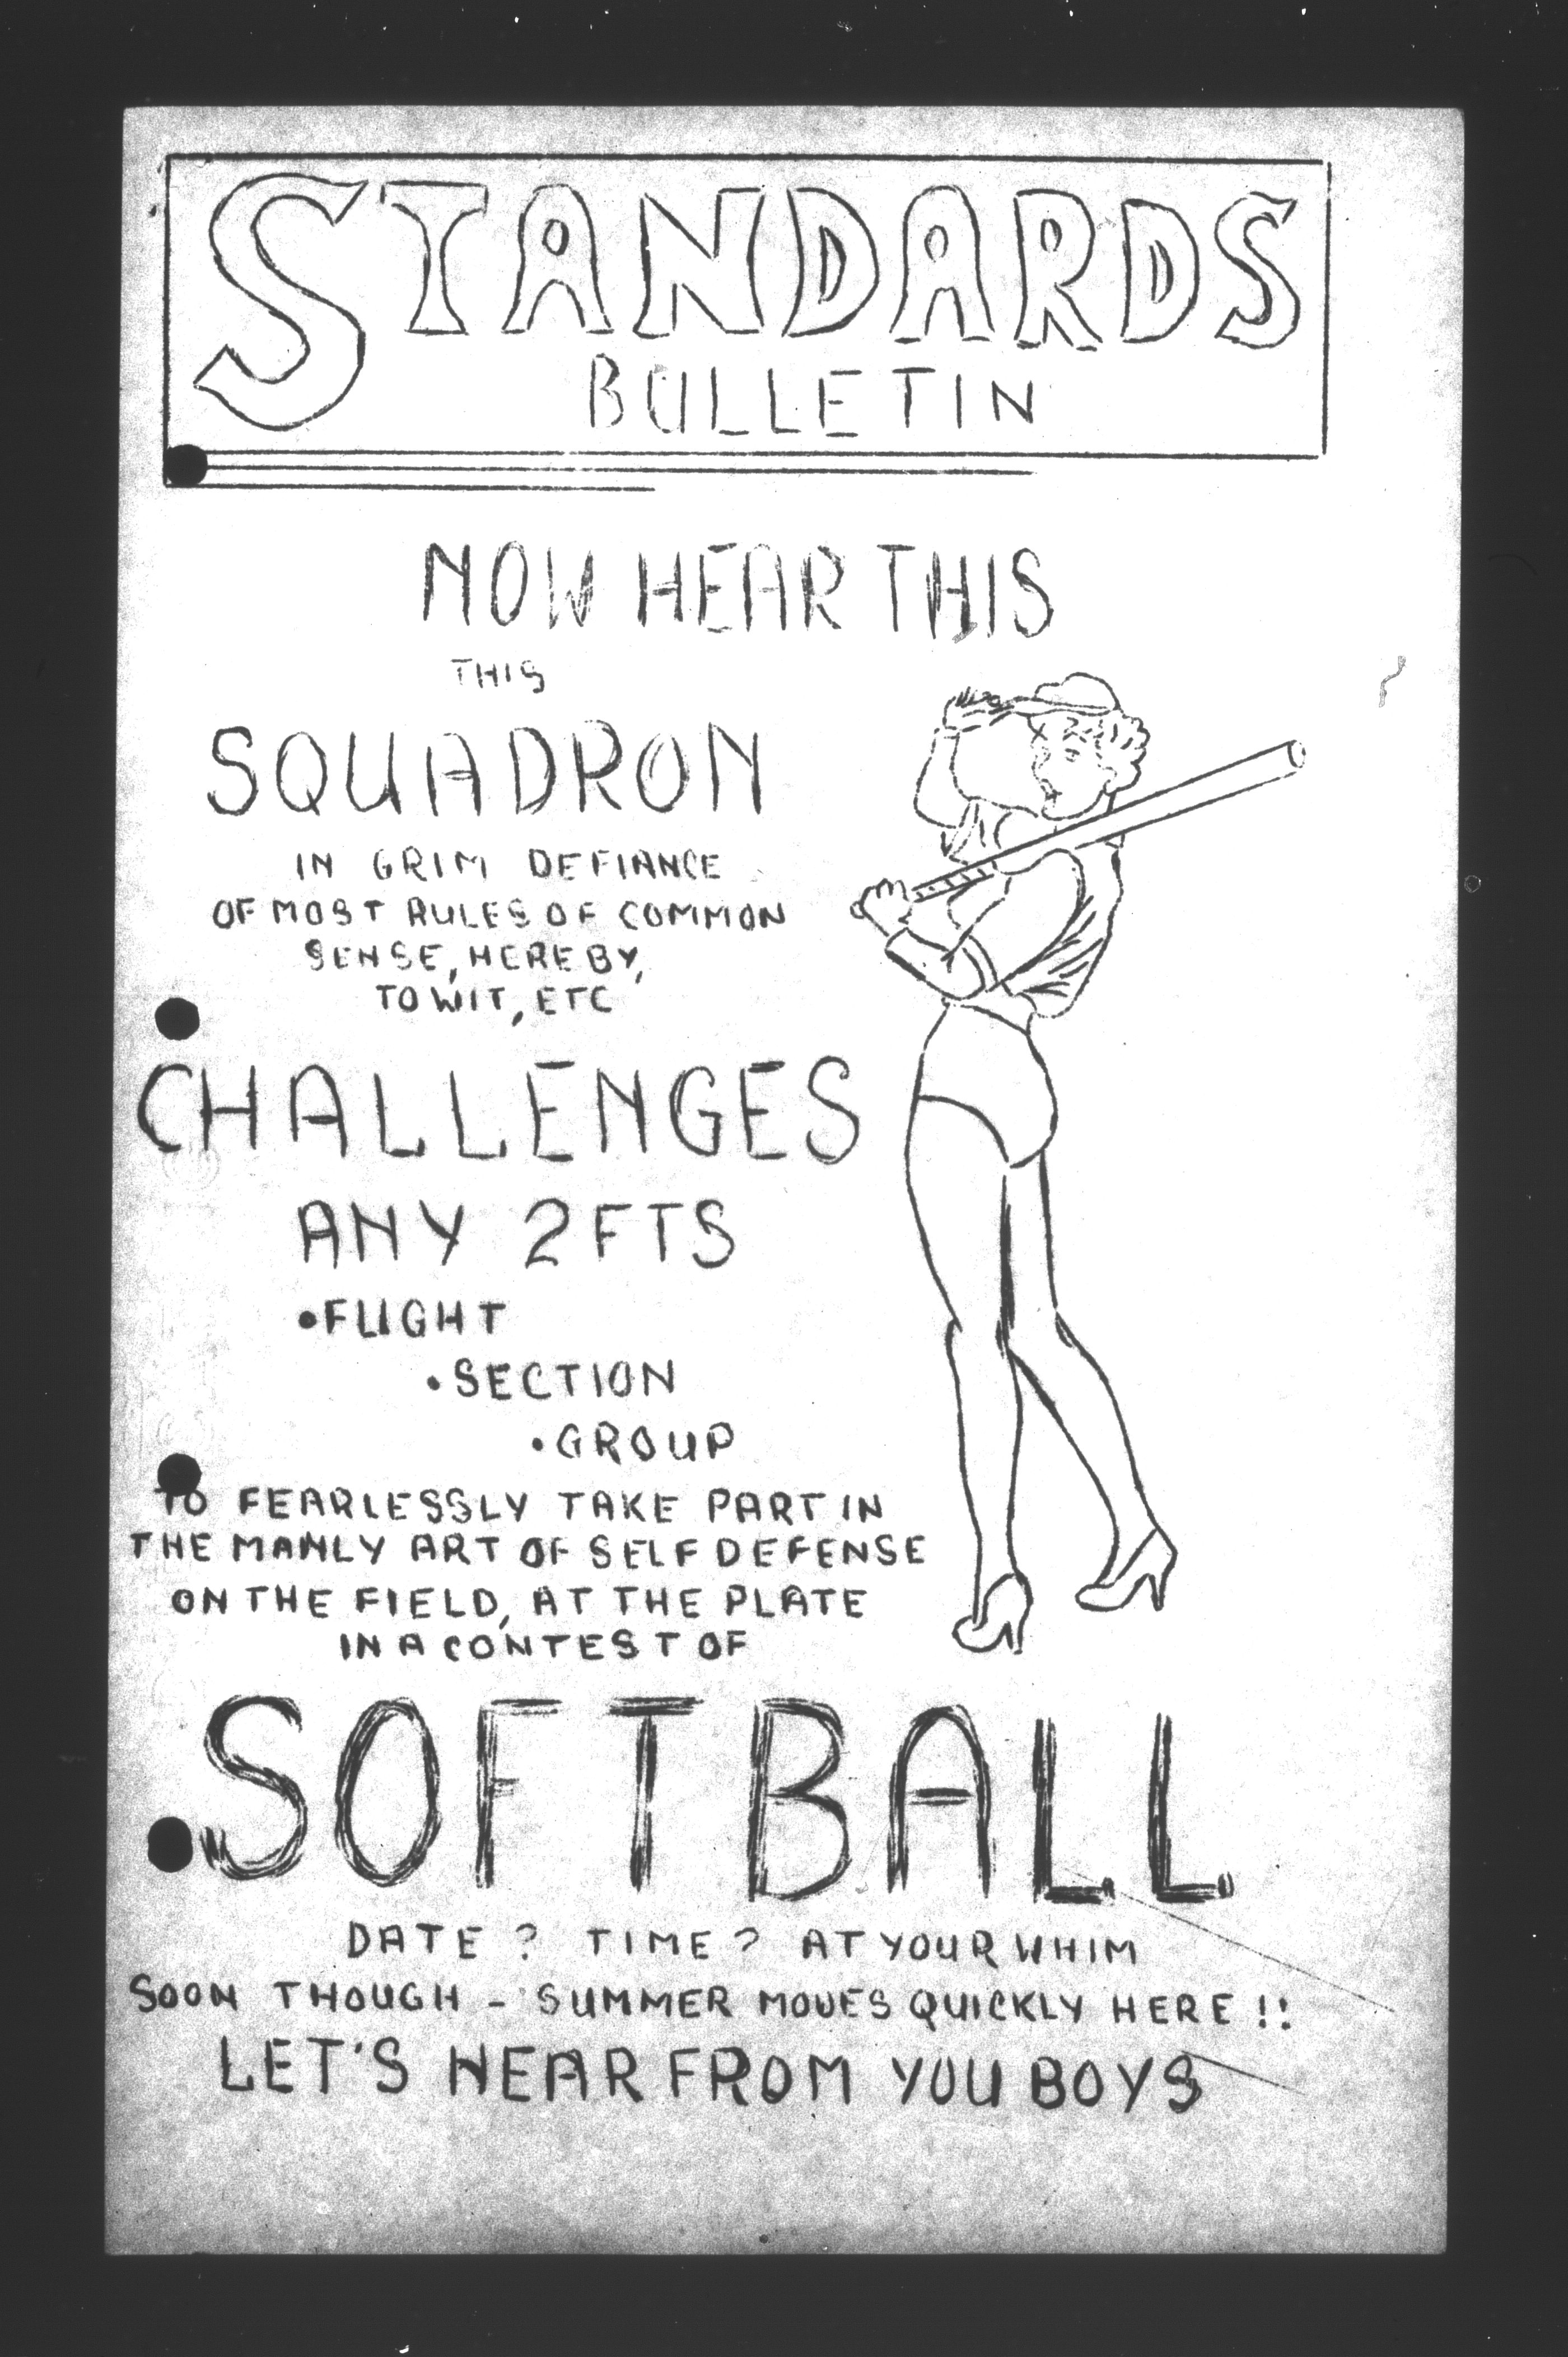 STANDARDS
BULLETIN
NOW HEAR THIS
THIS
SQUADRON
IN GRIM DEFIANCE
OF MOST RULES OF COMMON
SENSE, HEREBY,
TO WIT, ETC
CHALLENGES
ANY 2FTS
•FLIGHT
•SECTION
•GROUP
TO FEARLESSLY TAKE PART IN
THE MANLY ART OF SELF DEFENSE
ON THE FIELD, AT THE PLATE
IN A CONTEST OF
SOFTBALL
DATE ? TIME ? AT YOUR WHIM
SOON THOUGH - SUMMER MOVES QUICKLY HERE !!
LET'S HEAR FROM YOU BOYS